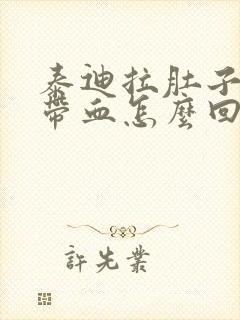 泰迪拉肚子
帶血怎麼回
許先業